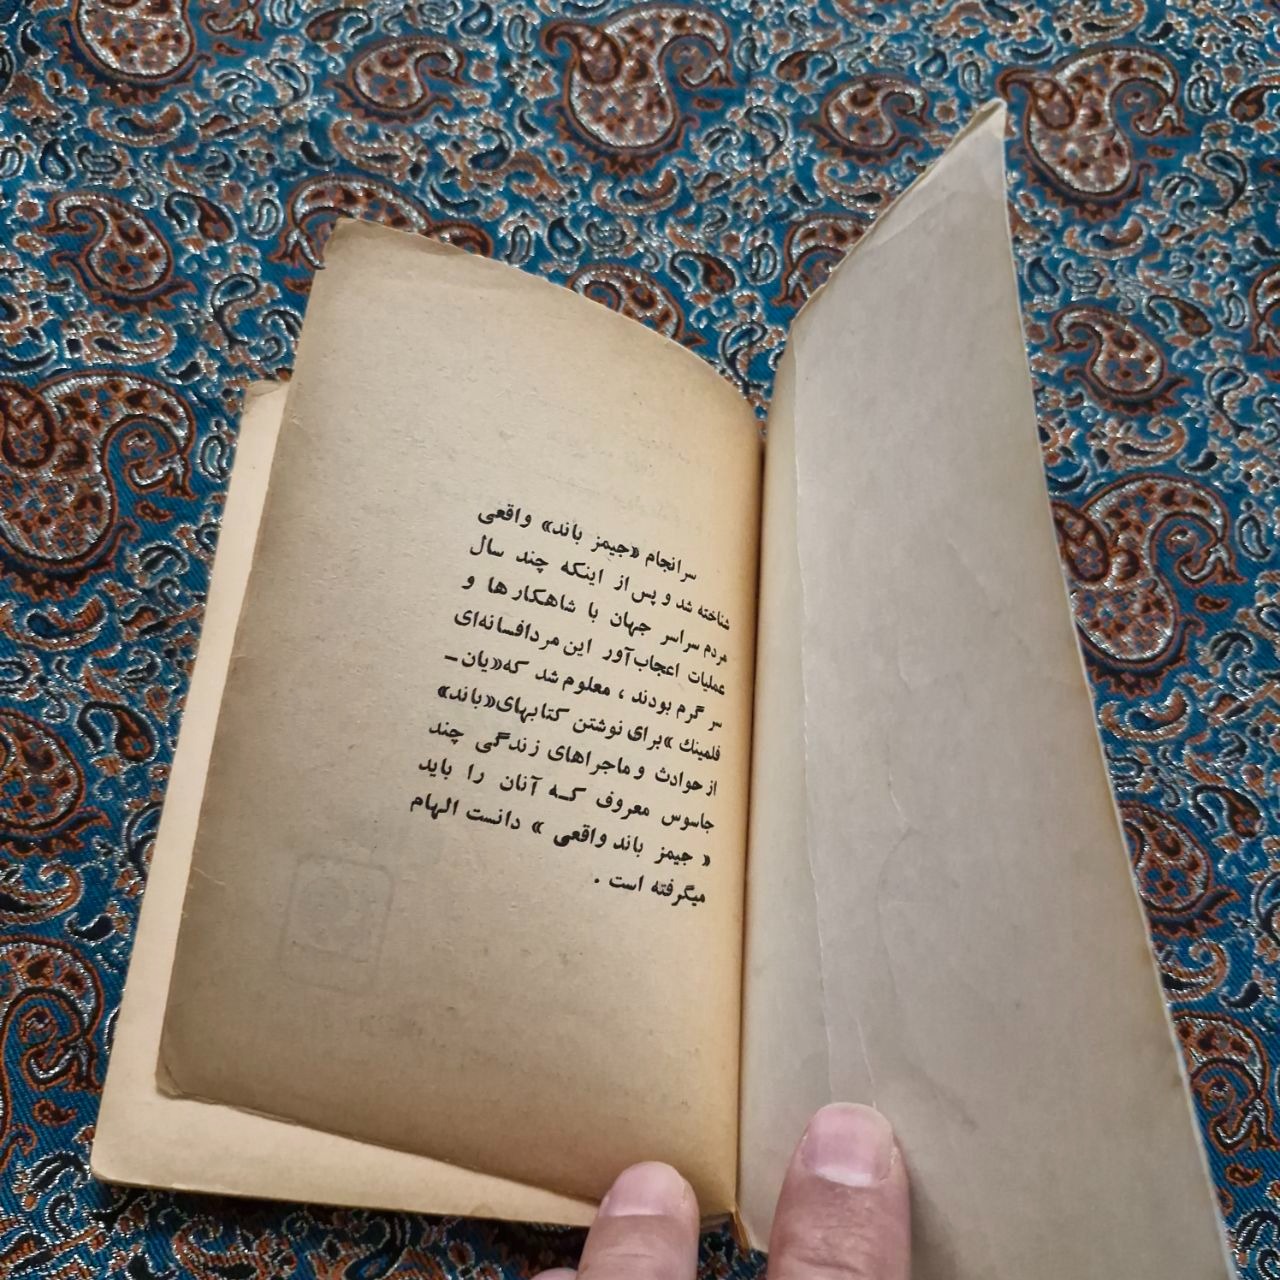 سرانجام «جیمز باند» واقعی
شناخته شد و پس از اینکه چند سال
مردم سراسر جهان با شاهکارها و
عملیات اعجاب‌آور این مرد افسانه‌ای
سر گرم بودند ، معلوم شد که «یان ـ
فلمینك » برای نوشتن کتابهای «باند»
از حوادث و ماجراهای زندگی چند
جاسوس معروف کـه آنان را باید
« جیمز باند واقعی » دانست الهام
میگرفته است .